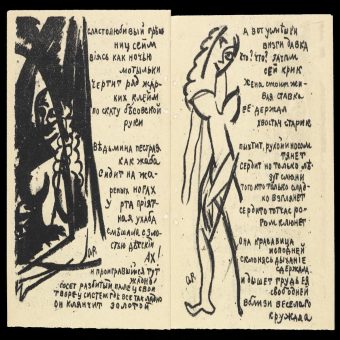 сластолюбивый грѣш
ниц сейм
вiясь как ночью
мотыльки
чертит ряд жар
ких клейм
по скату бѣсовской
руки
вѣдьмина пестрая
как жаба
сидит на жа
реных ногах
у рта прiят
ная ухаба
смѣшана с зло
стью дѣтскiй
Ах!
и проигравшiйся тут
жадно
сосет разбитый палец свой
творец систем где все так ладно
он клянчит золотой
А вот усмѣшки
визги давка
что? что? зачѣм
сей крик
жена стоит жи
вая ставка
ее держал
хвостач старик
пыхтит, рукой и носом
тянет
сердит но только лѣ
зут слюни
того кто только слад
ко взглянет
сердито тотчас ро
гом клюнет
она красавица
исподней
склонясь дыханiе
сдержала
и дышет грудь ея
свободней
вблизи веселаго
кружала